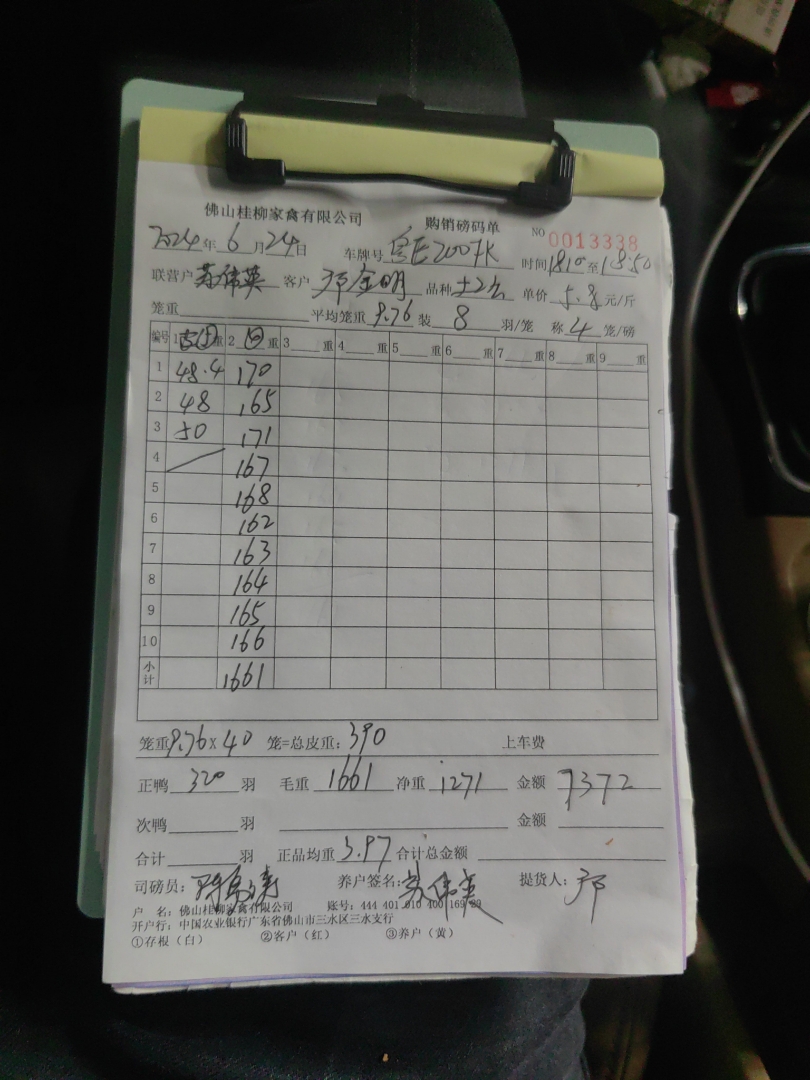 佛山桂柳家禽有限公司 购销磅码单 NO 0013338
2024年 6月 24日 车牌号 粤E200FK 时间 1810 至 18:50
联营户 苏伟英 客户 邓金明 品种 土2 单价 5.8 元/斤
笼重 平均笼重 9.76 装 8 羽/笼 称 4 笼/磅
编号 1 重 2 重 3 重 4 重 5 重 6 重 7 重 8 重 9 重
1 48.4 170
2 48 165
3 50 171
4 167
5 168
6 162
7 163
8 164
9 165
10 166
小计 1661
笼重 9.76 x 40 笼=总皮重: 390 上车费
正鸭 320 羽 毛重 1661 净重 1271 金额 7372
次鸭 羽 金额
合计 羽 正品均重 3.97 合计总金额
司磅员: 养户签名: 苏伟英 提货人: 邓
户 名: 佛山桂柳家禽有限公司 账号: 444 401 010 400 169 89
开户行: 中国农业银行广东省佛山市三水区三水支行
①存根（白） ②客户（红） ③养户（黄）